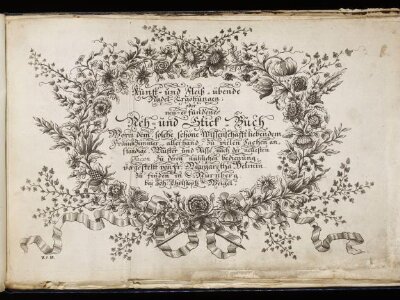 Kunst- und Fleiß-übende
Nadel-Ergötzungen
oder
neu-erfundenes
Neh-und Stick-Buch
Worin dem solche schöne Wissenschafft liebendem
Frauenzimmer allerhand zu vielen Sachen an-
ständige Muster und Risse nach der neuesten
Façon zu deren nützlichen bedienung
vorgestellt von Fr. Margaretha Helmin
Zu finden in Nürnberg
bey Joh. Christoph Weigel.